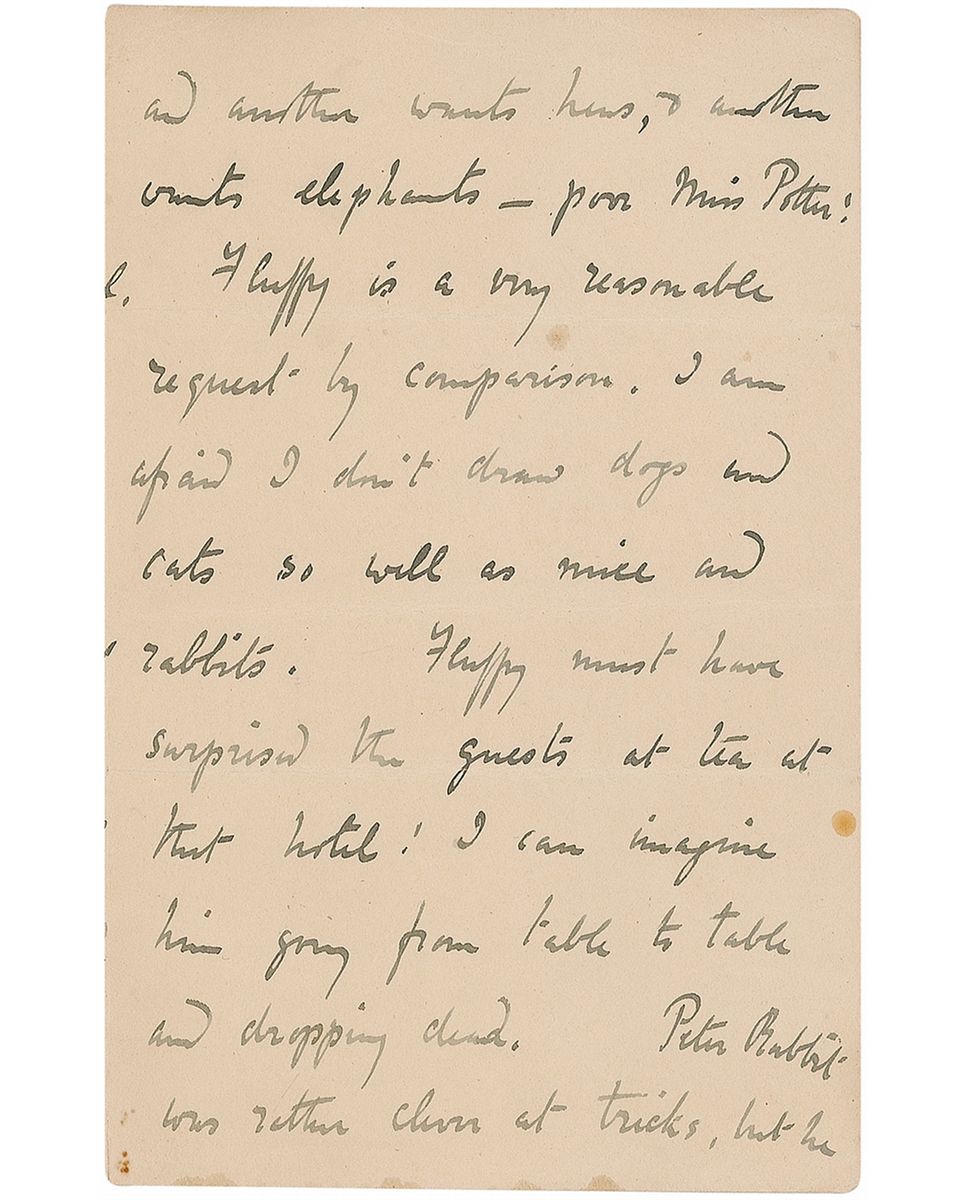 and another wants hens, & another
wants elephants — poor Miss Potter!
Fluffy is a very reasonable
request by comparison. I am
afraid I don't draw dogs and
cats so well as mice and
rabbits. Fluffy must have
surprised the guests at tea at
that hotel! I can imagine
him going from table to table
and dropping dead. Peter Rabbit
was rather clever at tricks, but he